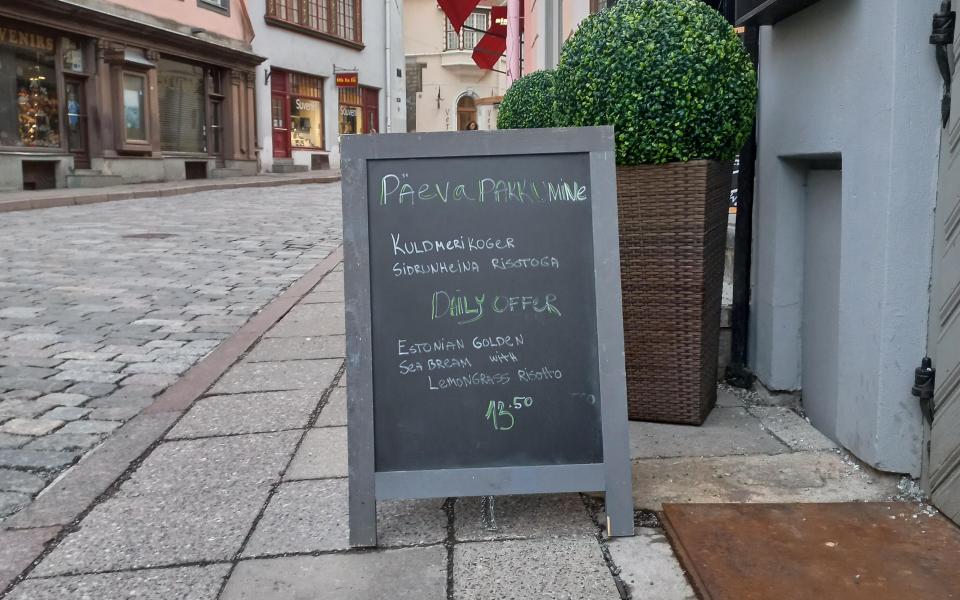 VENIRS
Souven
PÄeva PAKKUMINE
KULDMERIKOGER
SIDRUNHEINA RISOTOGA
DAILY OFFER
ESTONIAN GOLDEN
SEA BREAM WITH
LEMONGRASS RISOTTO
13.50